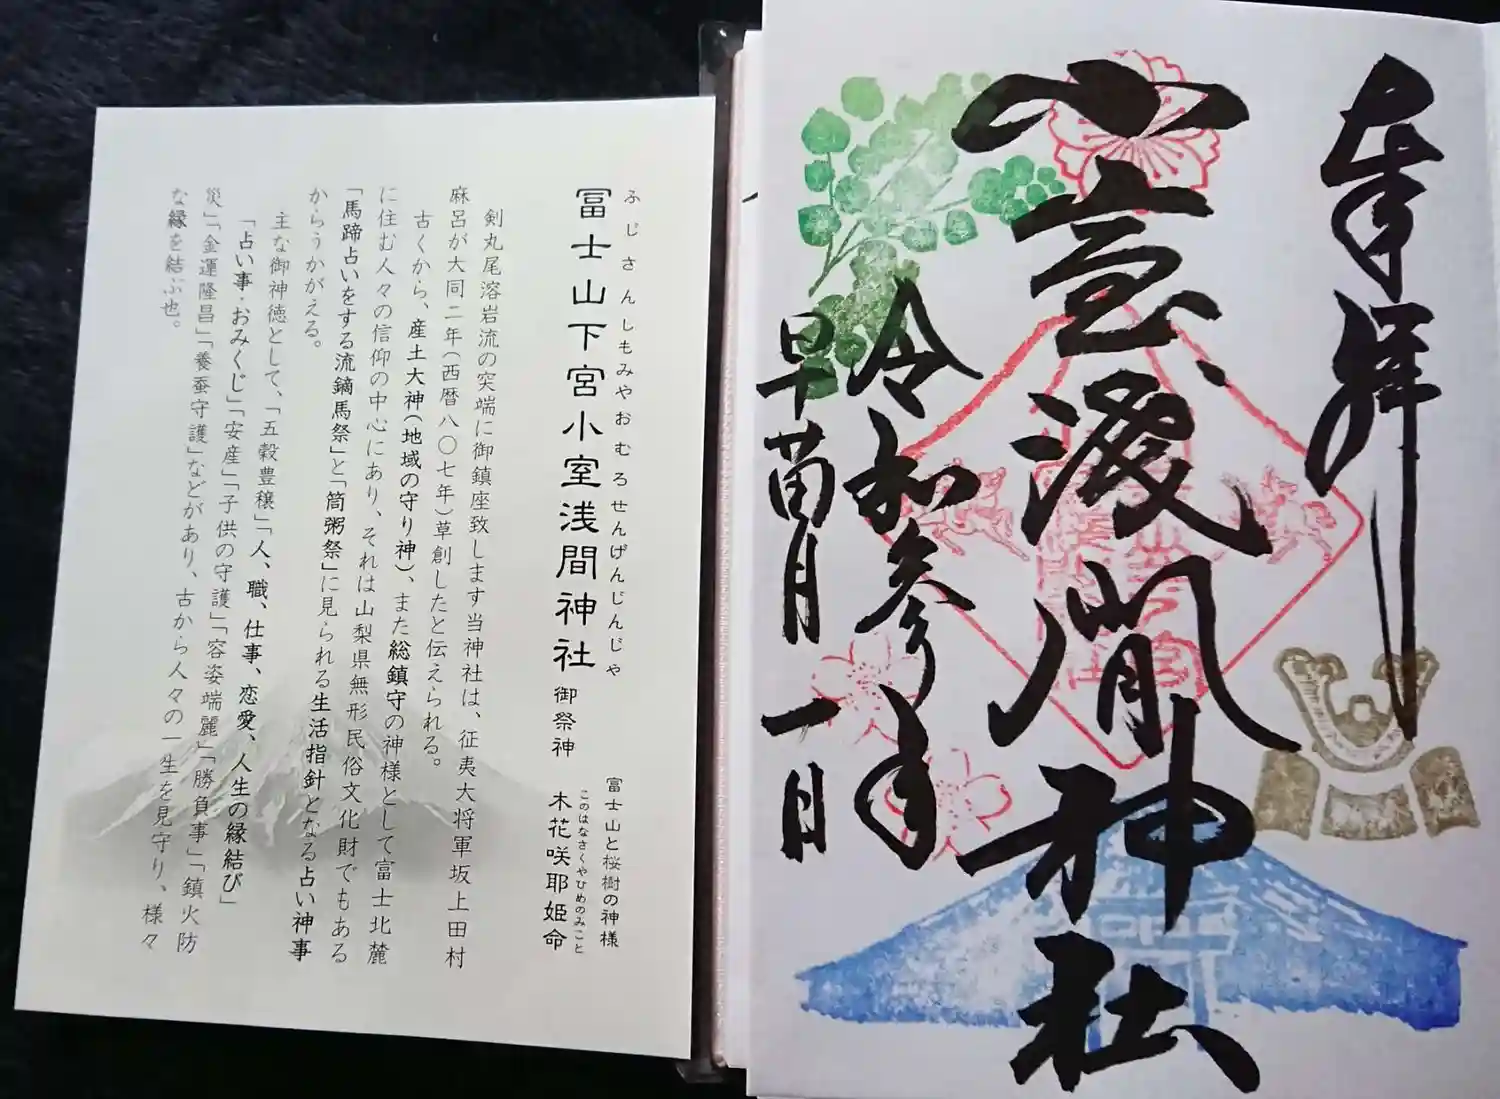 奉拝
小室浅間神社
令和参年
早苗月一日
ふじさんしもみやおむろせんげんじんじゃ
冨士山下宮小室浅間神社 御祭神
富士山と桜樹の神様
このはなさくやひめのみこと
木花咲耶姫命
剣丸尾溶岩流の突端に御鎮座致します当神社は、征夷大将軍坂上田村
麻呂が大同二年(西暦八〇七年)草創したと伝えられる。
古くから、産土大神(地域の守り神)、また総鎮守の神様として富士北麓
に住む人々の信仰の中心にあり、それは山梨県無形民俗文化財でもある
「馬蹄占いをする流鏑馬祭」と「筒粥祭」に見られる生活指針となる占い神事
からうかがえる。
主な御神徳として、「五穀豊穣」「人、職、仕事、恋愛、人生の縁結び」
「占い事・おみくじ」「安産」「子供の守護」「容姿端麗」「勝負事」「鎮火防
災」「金運隆昌」「養蚕守護」などがあり、古から人々の一生を見守り、様々
な縁を結ぶ也。